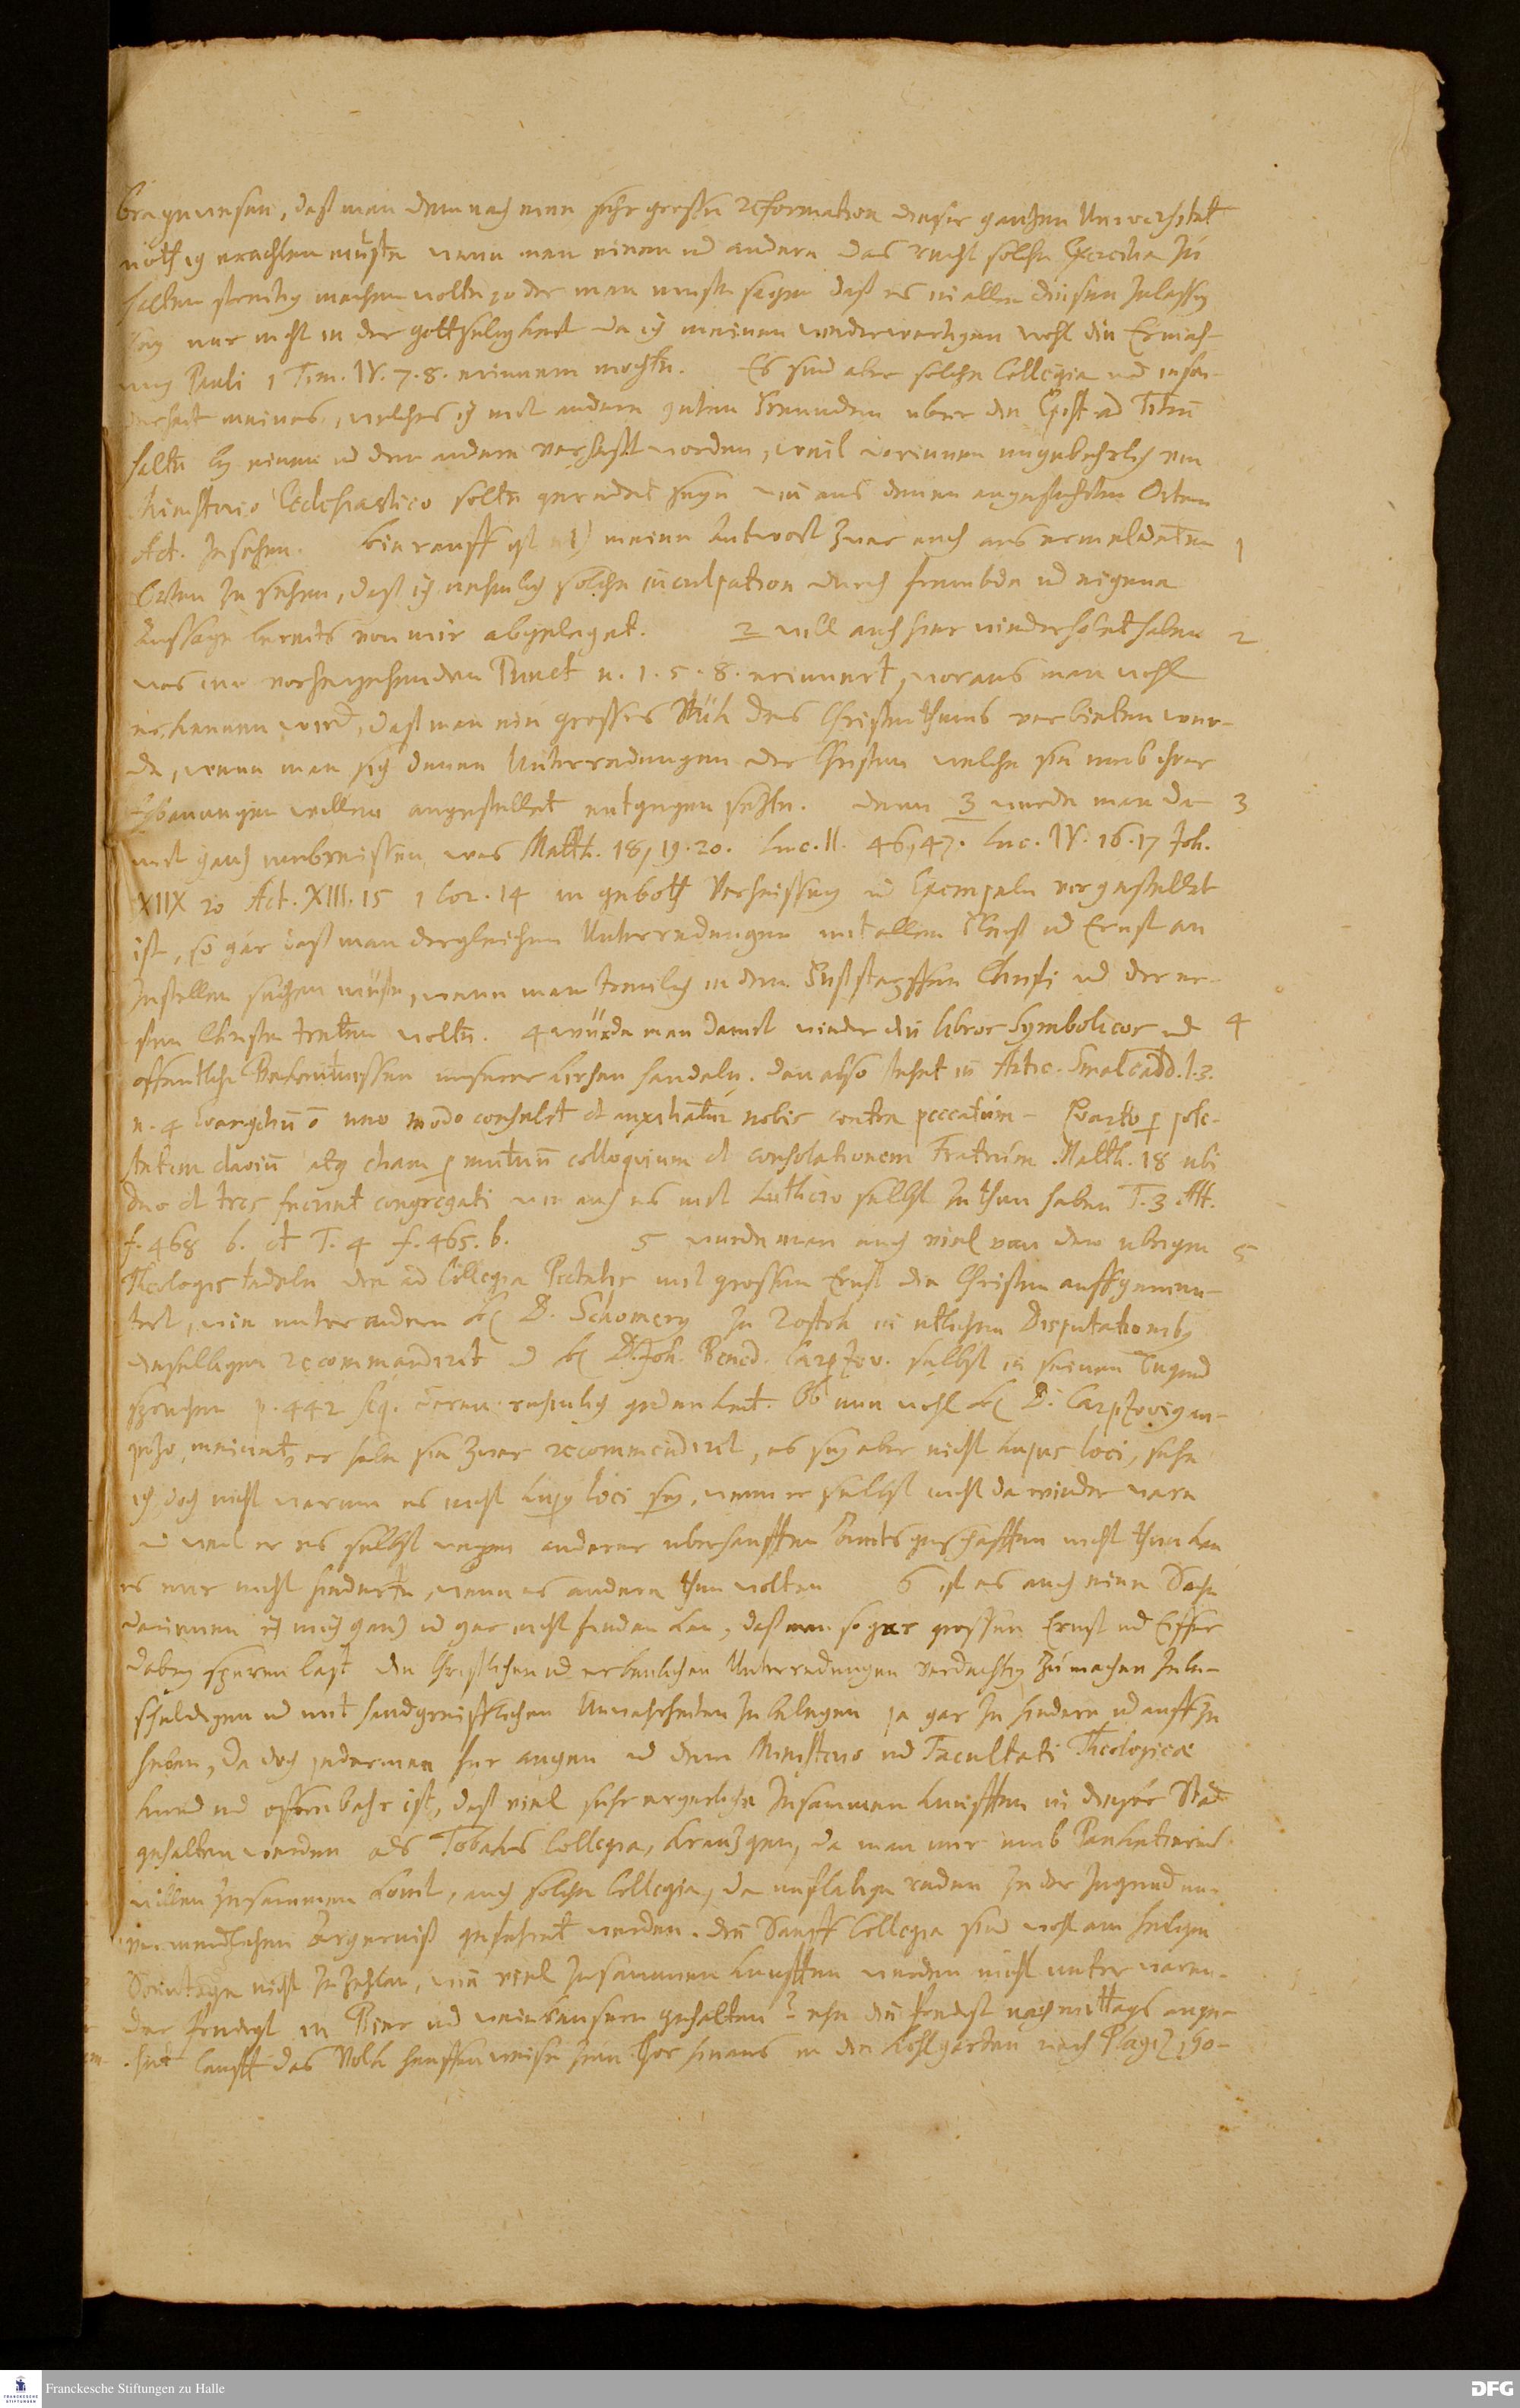 daß man demnach eine sehr grosse reformation dieser gantzen Universitet
nöthig erachten müste wenn man einem und andern das recht solche Exercitia zu
halten streitig machen wolte, oder man muste sagen daß es in allen dingen zulessig
sey nur nicht in der gottseligkeit da ich meinen wiederwertigen wohl die Ermah-
nung Pauli 1 Tim. IV. 7. 8. erinnern mochte. Es sind aber solche Collegia und inson-
derheit meines, welches ich mit andern guten Freunden uber die Epist. ad Titum
halte bey einem und dem andern verhaßt worden, weil darinnen ungebehrlich vom
Ministerio Ecclesiastico solte geredet seyn wie aus denen angefuhrten Orten
Act. zu sehen. Hierauff ist 1) meine Antwort zwar auch aus ermeldeten 1
Orten zu sehen, daß ich nehmlich solche inculpation durch frembde und eigene
Aussage bereits von mir abgeleget. 2 will auch hier wiederholet haben 2
was im vorhergehenden Punct n. 1. 5. 8. erinnert, woraus man wohl
erkennen wird, daß man ein grosses Stück des Christenthums verbieten wur-
de, wenn man sich denen Unterredungen der Christen welche sie umb ihrer
Erbauungen willen angestellet entgegen setzte. denn 3 wurde man da- 3
mit gantz umbreissen, was Matth. 18, 19. 20. Luc. II. 46, 47. Luc. IV. 16. 17 Joh.
XIIX 20 Act. XIII. 15 1 Cor. 14 in geboth Verheissung und Exempeln vorgestellet
ist, so gar daß man dergleichen Unterredungen mit allem Fleiß und Ernst an
zustellen suchen müste, wenn man treulich in den Fußstapffen Christi und der er-
sten Christen treten wolte. 4 würde man damit wieder die libros Symbolicos und 4
offentliche Bekentnissen unserer Kirchen handeln. den also stehet in Artic. Smalcadd. l. 3.
n. 4 Evangelium non uno modo consulit et auxiliatur nobis contra peccatum - Quarto per pote-
statem clavium atque etiam per mutuum colloquium et consolationem Fratrum Matth. 18 ubi
duo et tres fuerint congregati wie auch es mit Luthero selbst zu thun haben T. 3 Alt.
f. 468 b. et T. 4 f. 465. b. 5 wurde man auch viel von den ubrigen 5
Theologis tadeln die ad Collegia Pietatis mit grossem Ernst die Christen auffgemun-
tert, wie unter andern H D. Schomerus zu Rostok in etlichen Disputationibus
dieselbigen recommandiret und H D. Joh. Bened. Carpzov. selbst in seinen Tugend
spruchen p. 442 seq. deren ruhmlich gedencket. Ob nun wohl H D. Carpzovius an-
jetzo meinet, er habe sie zwar recommendiret, es sey aber nicht hujus loci, sehe
ich doch nicht warum es nicht hujus loci sey, wenn er selbst nicht da wieder ware
und weil er es selbst wegen anderer uberhaufften Amtsgeschafften nicht thun kan
es nur nicht hinderte, wenn es andere thun wolten 6 ist es auch eine Sache
darinnen ich mich gantz und gar nicht finden kan, daß man so gar grossen Ernst und Eiffer
dabey spuren last die Christlichen und erbaulichen Unterredungen verdachtig zu machen zube-
schuldigen und mit handgreifflichen Unwahrheiten zu belegen ja gar zu hindern und auffzu
heben, da doch jederman fur augen und dem Ministerio und Facultati Theologicae
kund und offenbahr ist, daß viel sehr argerliche Zusammen kunfften in dieser Stadt
gehalten werden als Tobaks Collegia, Krantzgen, da man nur umb Panketirens
willen zusammen komt, auch solche Collegia, da unflatige reden zu der Jugend un-
vermeidlichen Ärgerniß gefuhret werden. die Sauff Collegia sind wohl am heiligen
Sontage nicht zu zehlen, wie viel Zusammen kunfften werden nicht unter waren-
der Predigt in Bier und weinhausern gehalten? ehe die Predigt nachmittags ange-
het laufft das Volk hauffenweise zum Thor hinaus in die Kohlgarten nach Plagwitz, Go-
Franckesche Stiftungen zu Halle
DFG